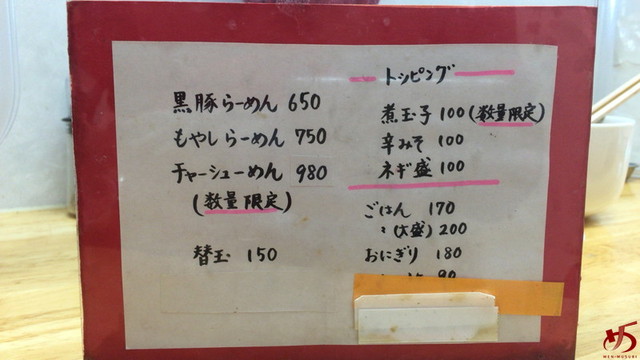 黒豚らーめん 650
もやしらーめん 750
チャーシューめん 980
(数量限定)
替玉 150
トッピング
煮玉子 100(数量限定)
辛みそ 100
ネギ盛 100
ごはん 170
〃(大盛) 200
おにぎり 180
90
MEN-MUSUBI